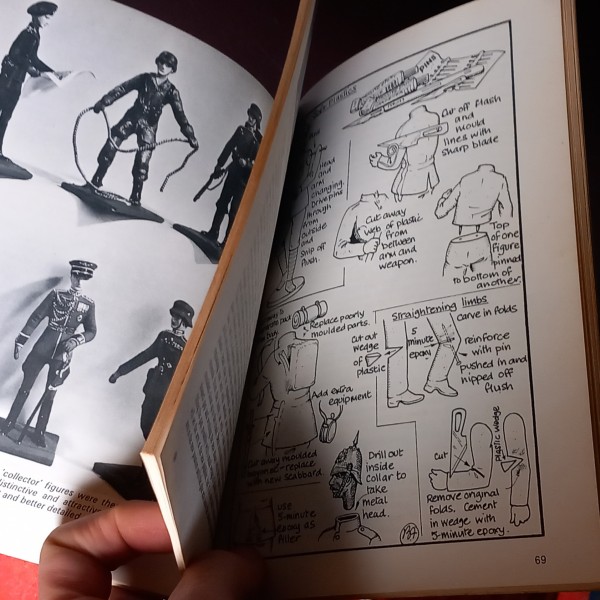 'collector' figures were the
distinctive and attractive
and better detailed
Plastics
PINS
Cut off flash
and
mould
lines with
sharp blade
Head
and
arm
changing.
Drive pins
through
from
outside
and
snip off
flush.
Cut away
web of plastic
from
between
arm and
weapon.
Top
of one
figure
pinned
to bottom of
another.
Replace poorly
moulded parts.
Add extra
equipment
Cut away moulded
replace
with new scabbard.
Straightening limbs
Cut out
wedge
of
plastic
5
minute
epoxy
carve in folds
reinforce
with pin
pushed in and
nipped off
flush
Drill out
inside
Collar to
take
metal
head.
use
5-minute
epoxy as
filler
Cut
Plastic wedge
Remove original
folds. Cement
in wedge with
5-minute epoxy.
69